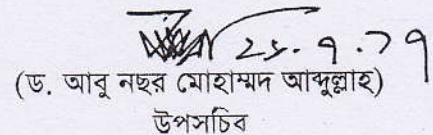 (ড. আবু নছর মোহাম্মদ আব্দুল্লাহ)
উপসচিব